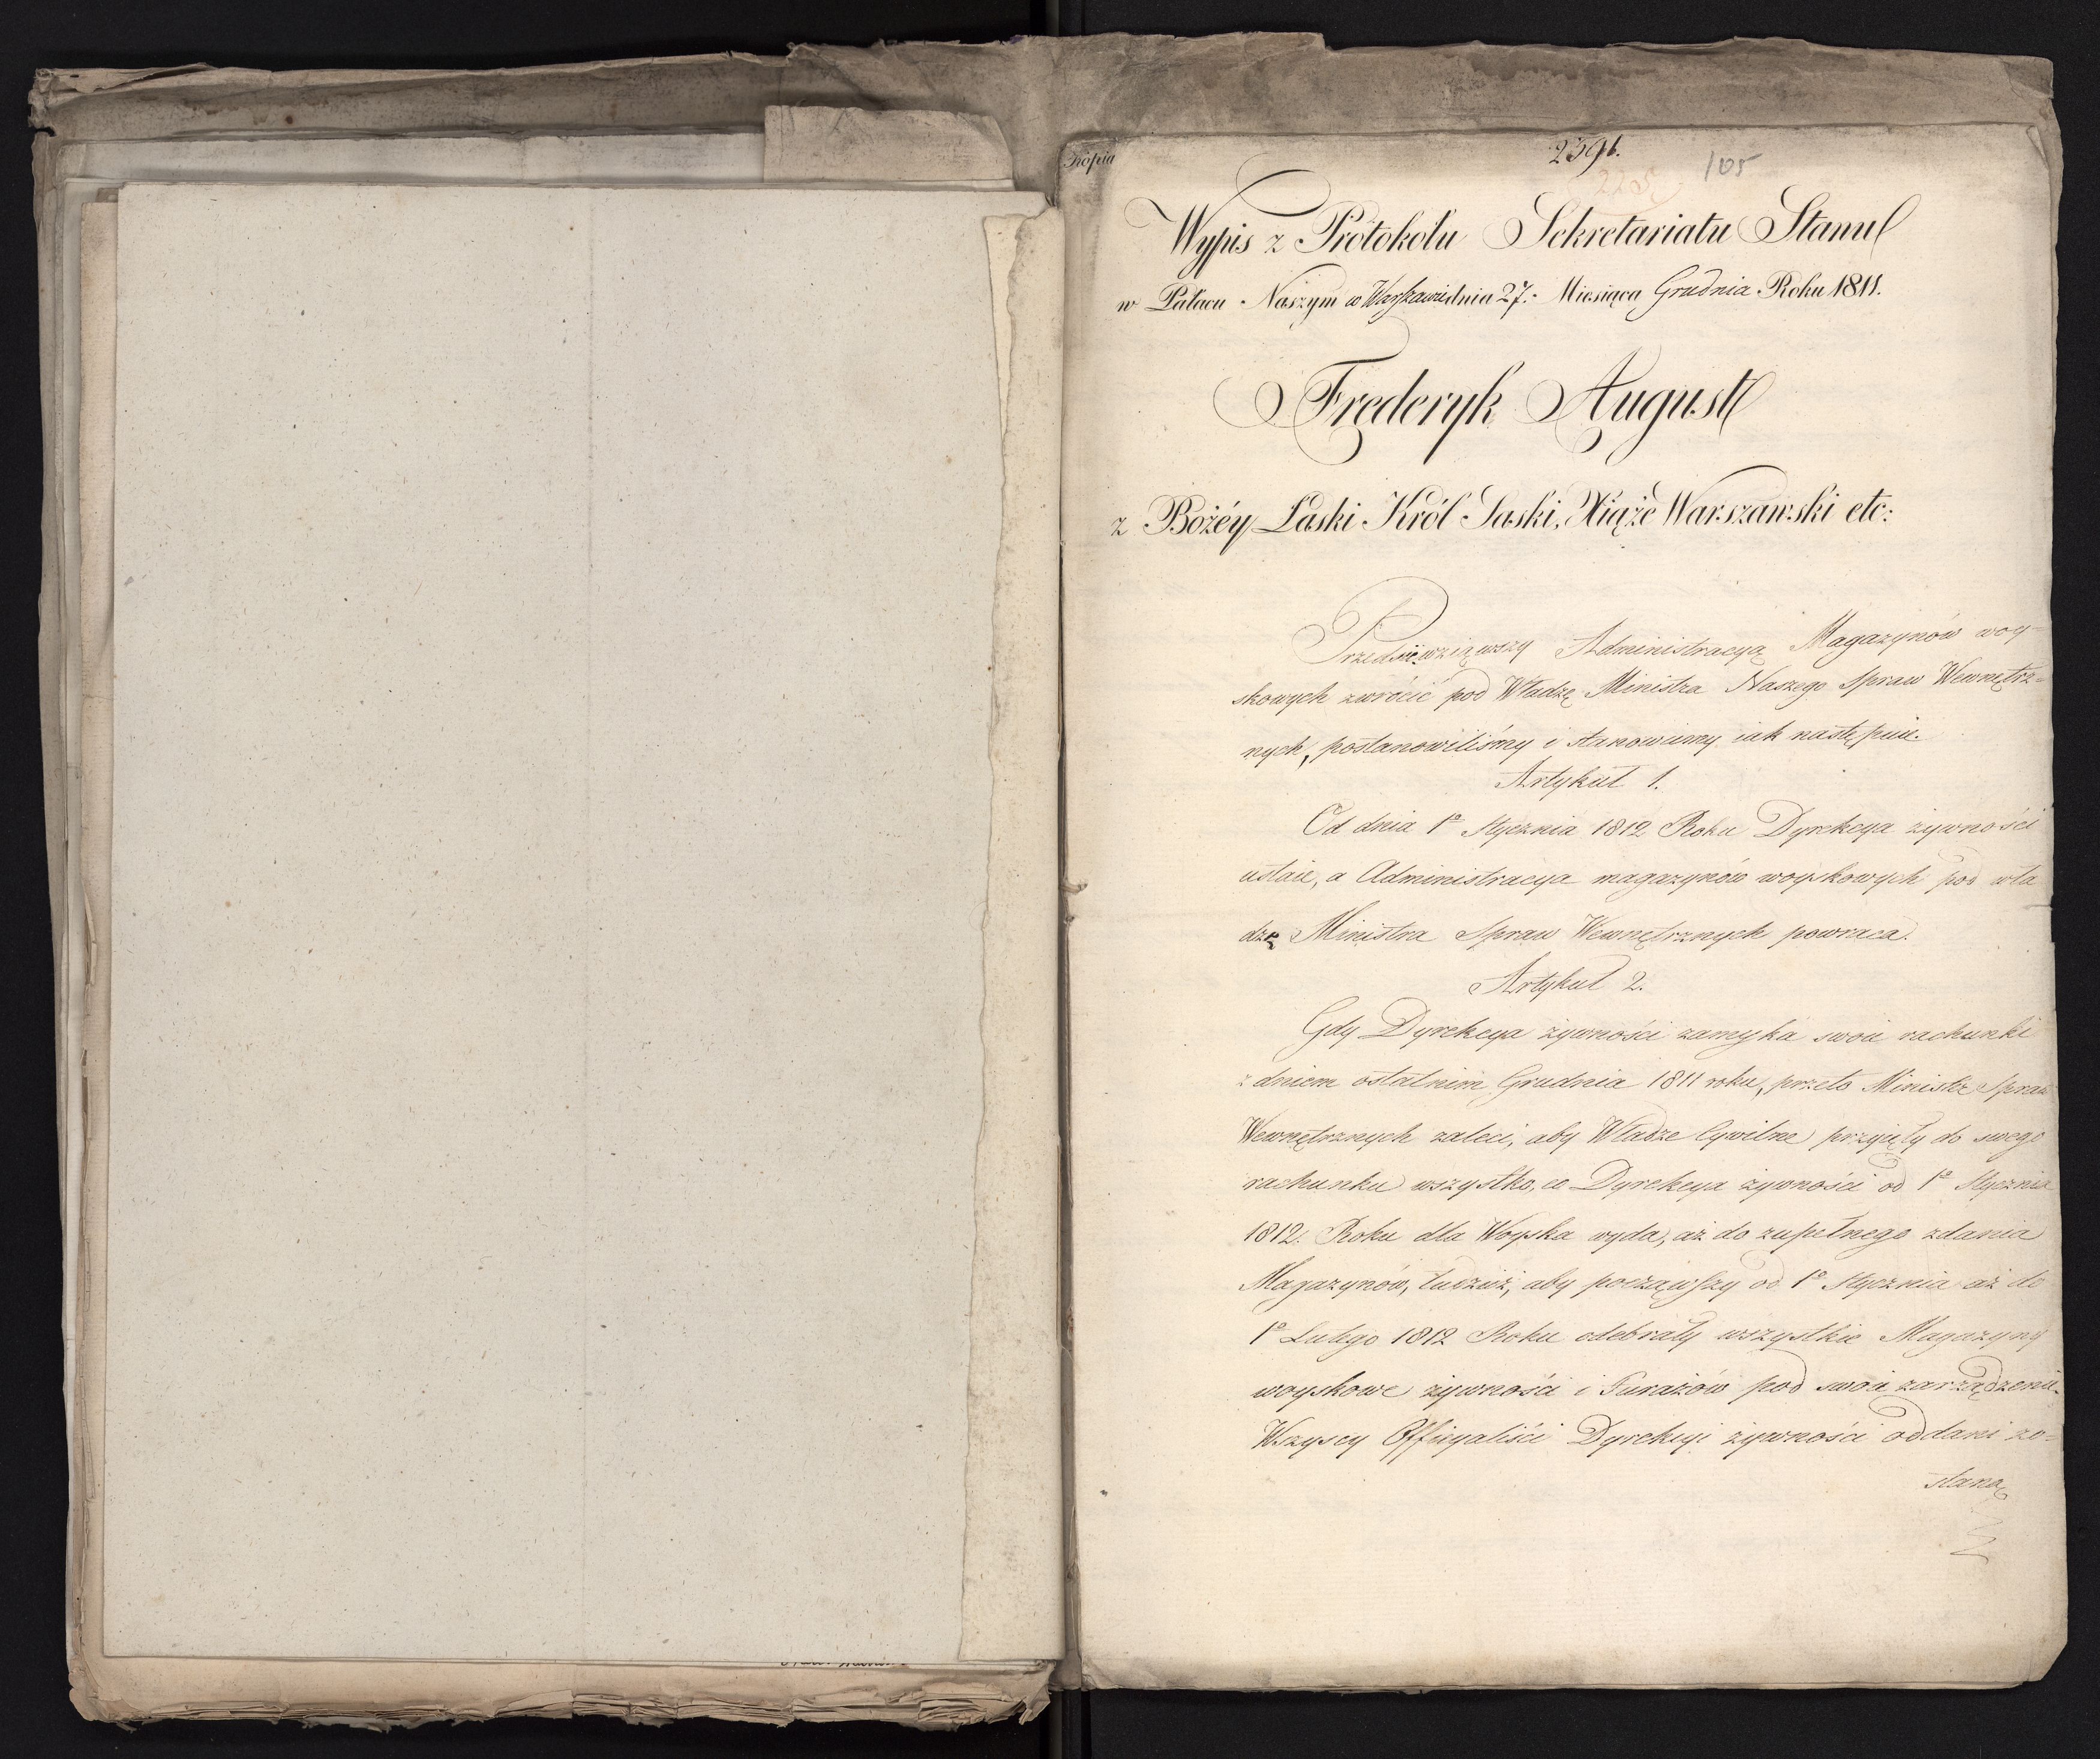 Kopia
2391.
225
105
Wypis z Protokołu Sekretariatu Stanu
w Pałacu Naszym w Warszawie dnia 27. Miesiąca Grudnia Roku 1811.
Frederyk August
z Bożéy Łaski Król Saski, Xiąże Warszawski etc:
Przedsięwziąwszy Administracyą Magazynów woy=
skowych zwrócić pod Władzę Ministra Naszego Spraw Wewnętrz=
nych, postanowiliśmy i stanowiemy iak następuie.
Artykuł 1.
Od dnia 1º Stycznia 1812 Roku Dyrekcya żywności
ustaie, a Administracya magazynów woyskowych pod wła
dzę Ministra Spraw Wewnętrznych powraca.
Artykuł 2.
Gdy Dyrekcya żywności zamyka swoie rachunki
z dniem ostatnim Grudnia 1811 roku, przeto Minister Spraw
Wewnętrznych zaleci, aby Władze Cywilne przyięły do swego
rachunku wszystko, co Dyrekcya żywności od 1º Stycznia
1812. Roku dla Woyska wyda, aż do zupełnego zdania
Magazynów, tudzież, aby począwszy od 1º Stycznia aż do
1º Lutego 1812 Roku odebrały wszystkie Magazyny
woyskowe żywności i Furażów pod swoie zarządzenie.
Wszyscy Officyaliści Dyrekcyi żywności oddani zo=
staną